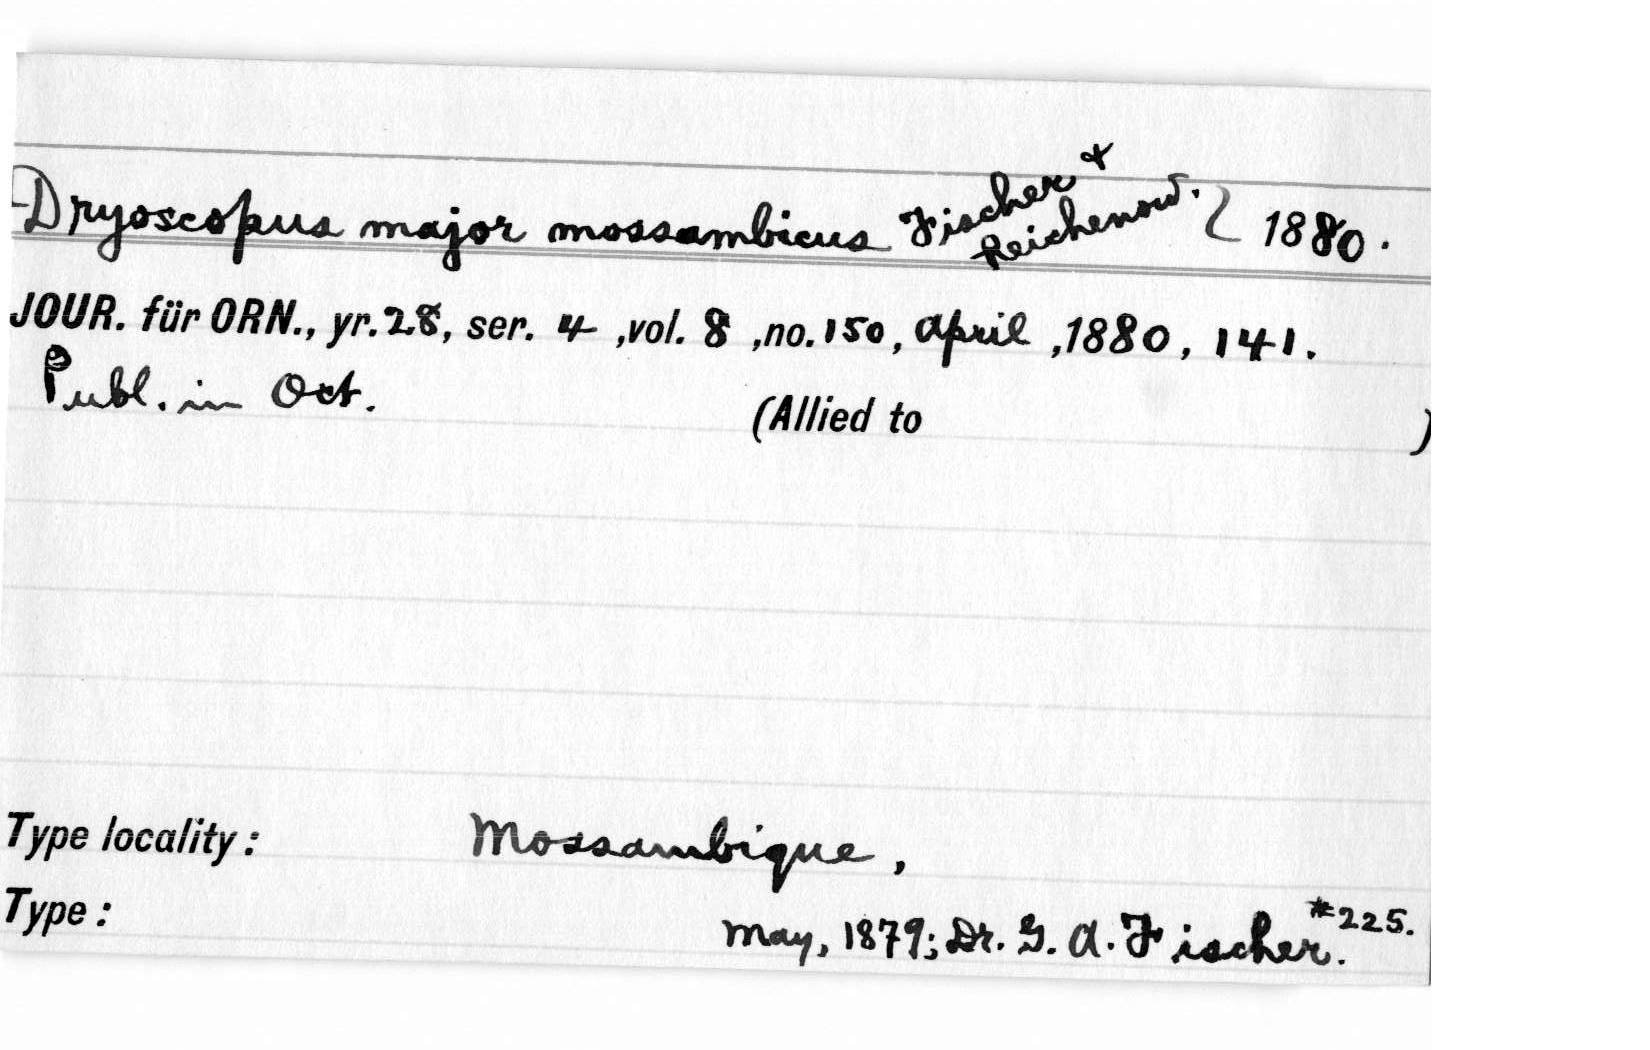 Dryoscopus major mossambicus Fischer & Reichenow. 1880.
JOUR. für ORN., yr. 28, ser. 4, vol. 8, no. 150, April, 1880, 141.
Publ. in Oct.
(Allied to )
Type locality: Mossambique,
Type: May, 1879; Dr. G. A. Fischer. #225.